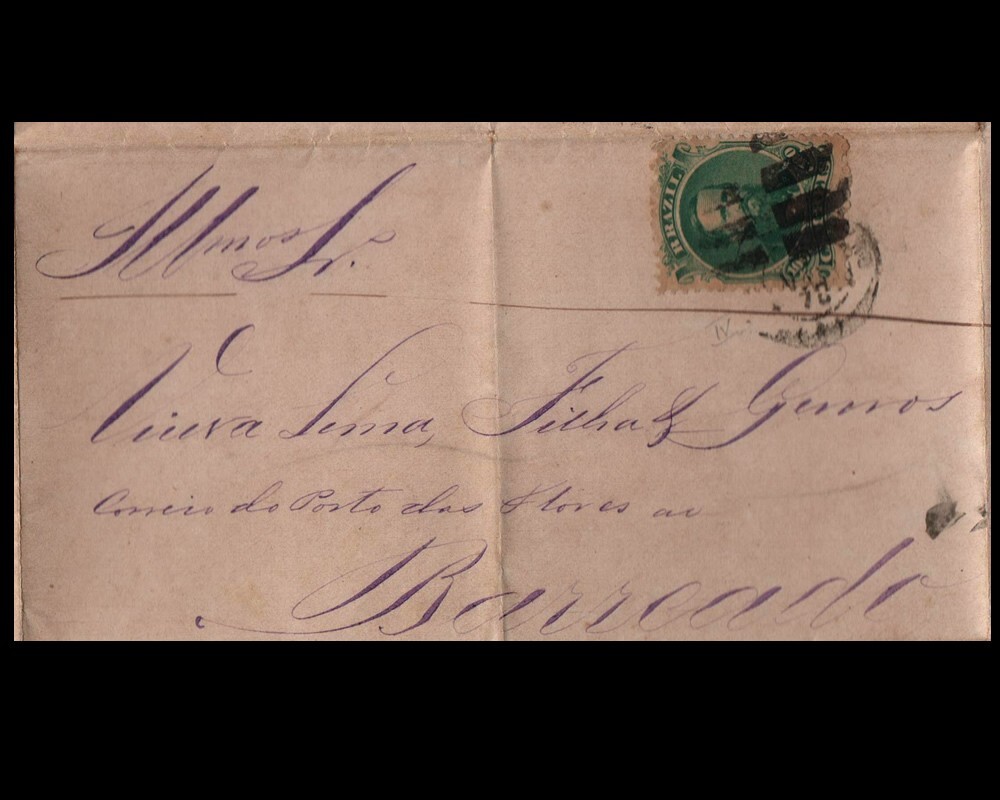 Illmos Sr.
BRAZIL
Viuva Lima, Filha & Genros
Correio do Porto das Flores ao
Barreado